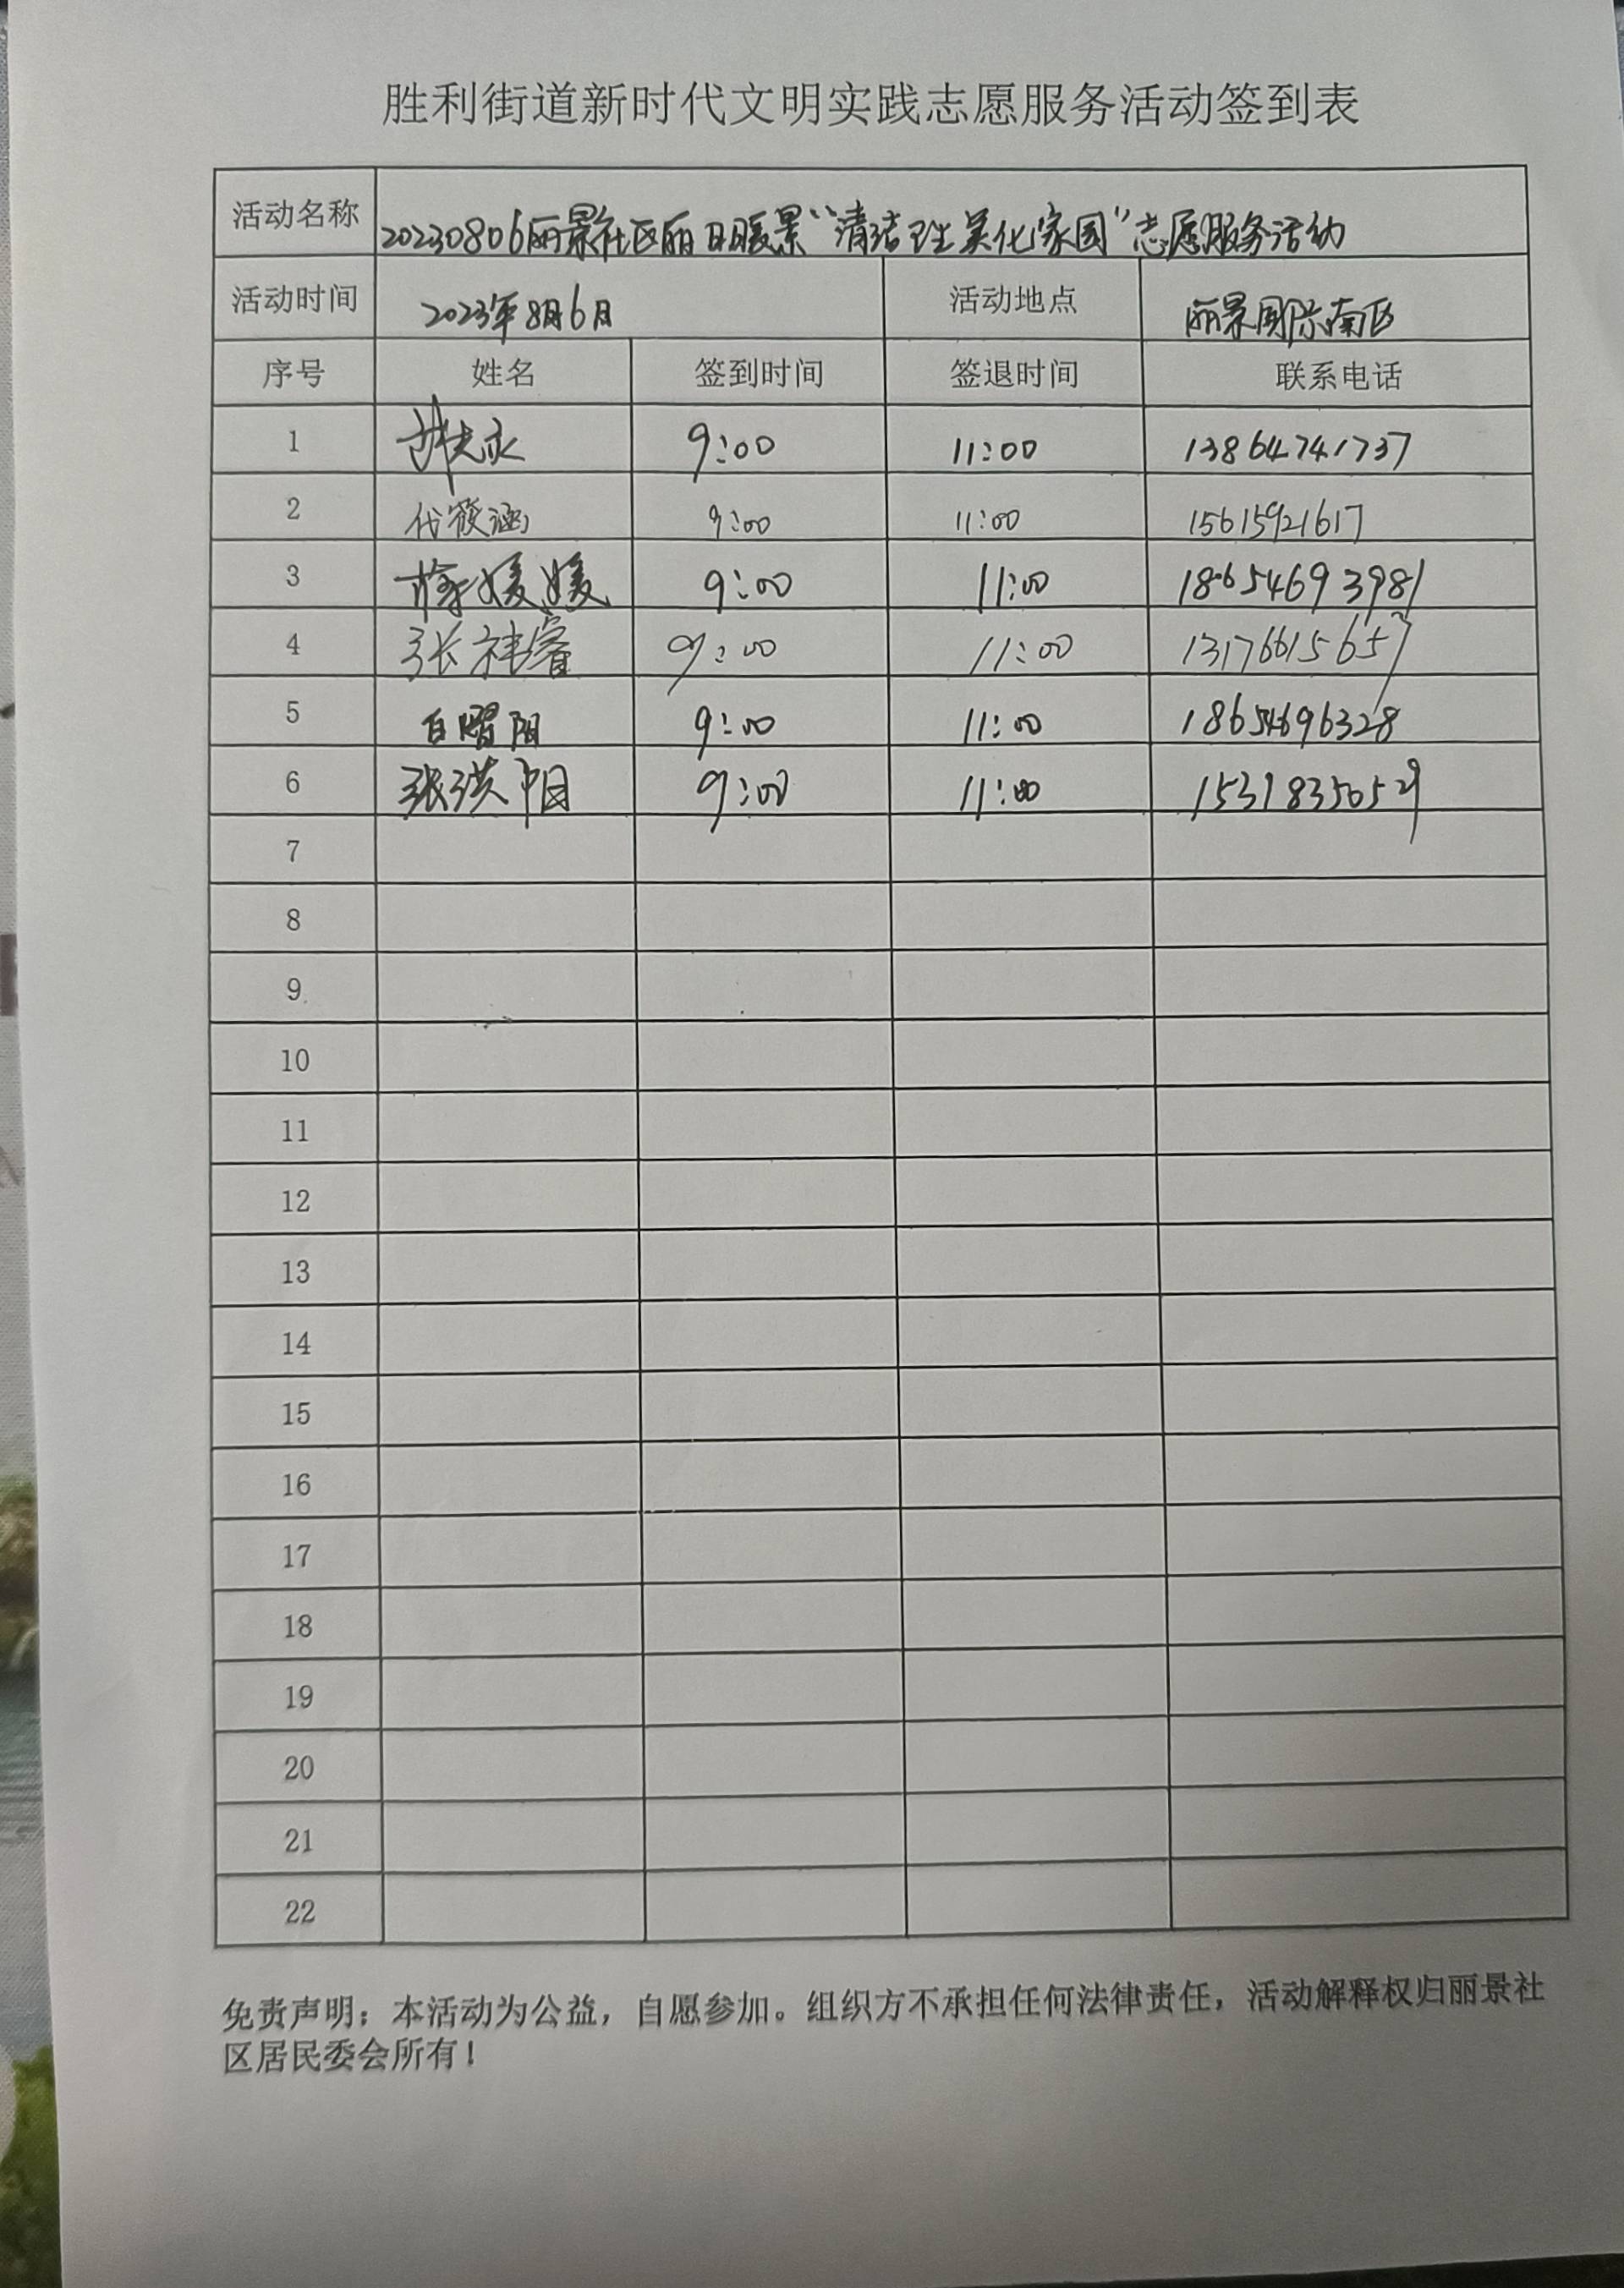 胜利街道新时代文明实践志愿服务活动签到表
活动名称 20230806丽景社区丽日暖景“清洁卫生美化家园”志愿服务活动
活动时间 2023年8月6日 活动地点 丽景国际南区
序号 姓名 签到时间 签退时间 联系电话
1 9:00 11:00 13864741737
2 代筱涵 9:00 11:00 15615921617
3 徐媛媛 9:00 11:00 18654693981
4 张祎睿 9:00 11:00 13176615657
5 9:00 11:00 18654696328
6 9:00 11:00 15318350529
7
8
9
10
11
12
13
14
15
16
17
18
19
20
21
22
免责声明：本活动为公益，自愿参加。组织方不承担任何法律责任，活动解释权归丽景社
区居民委会所有！